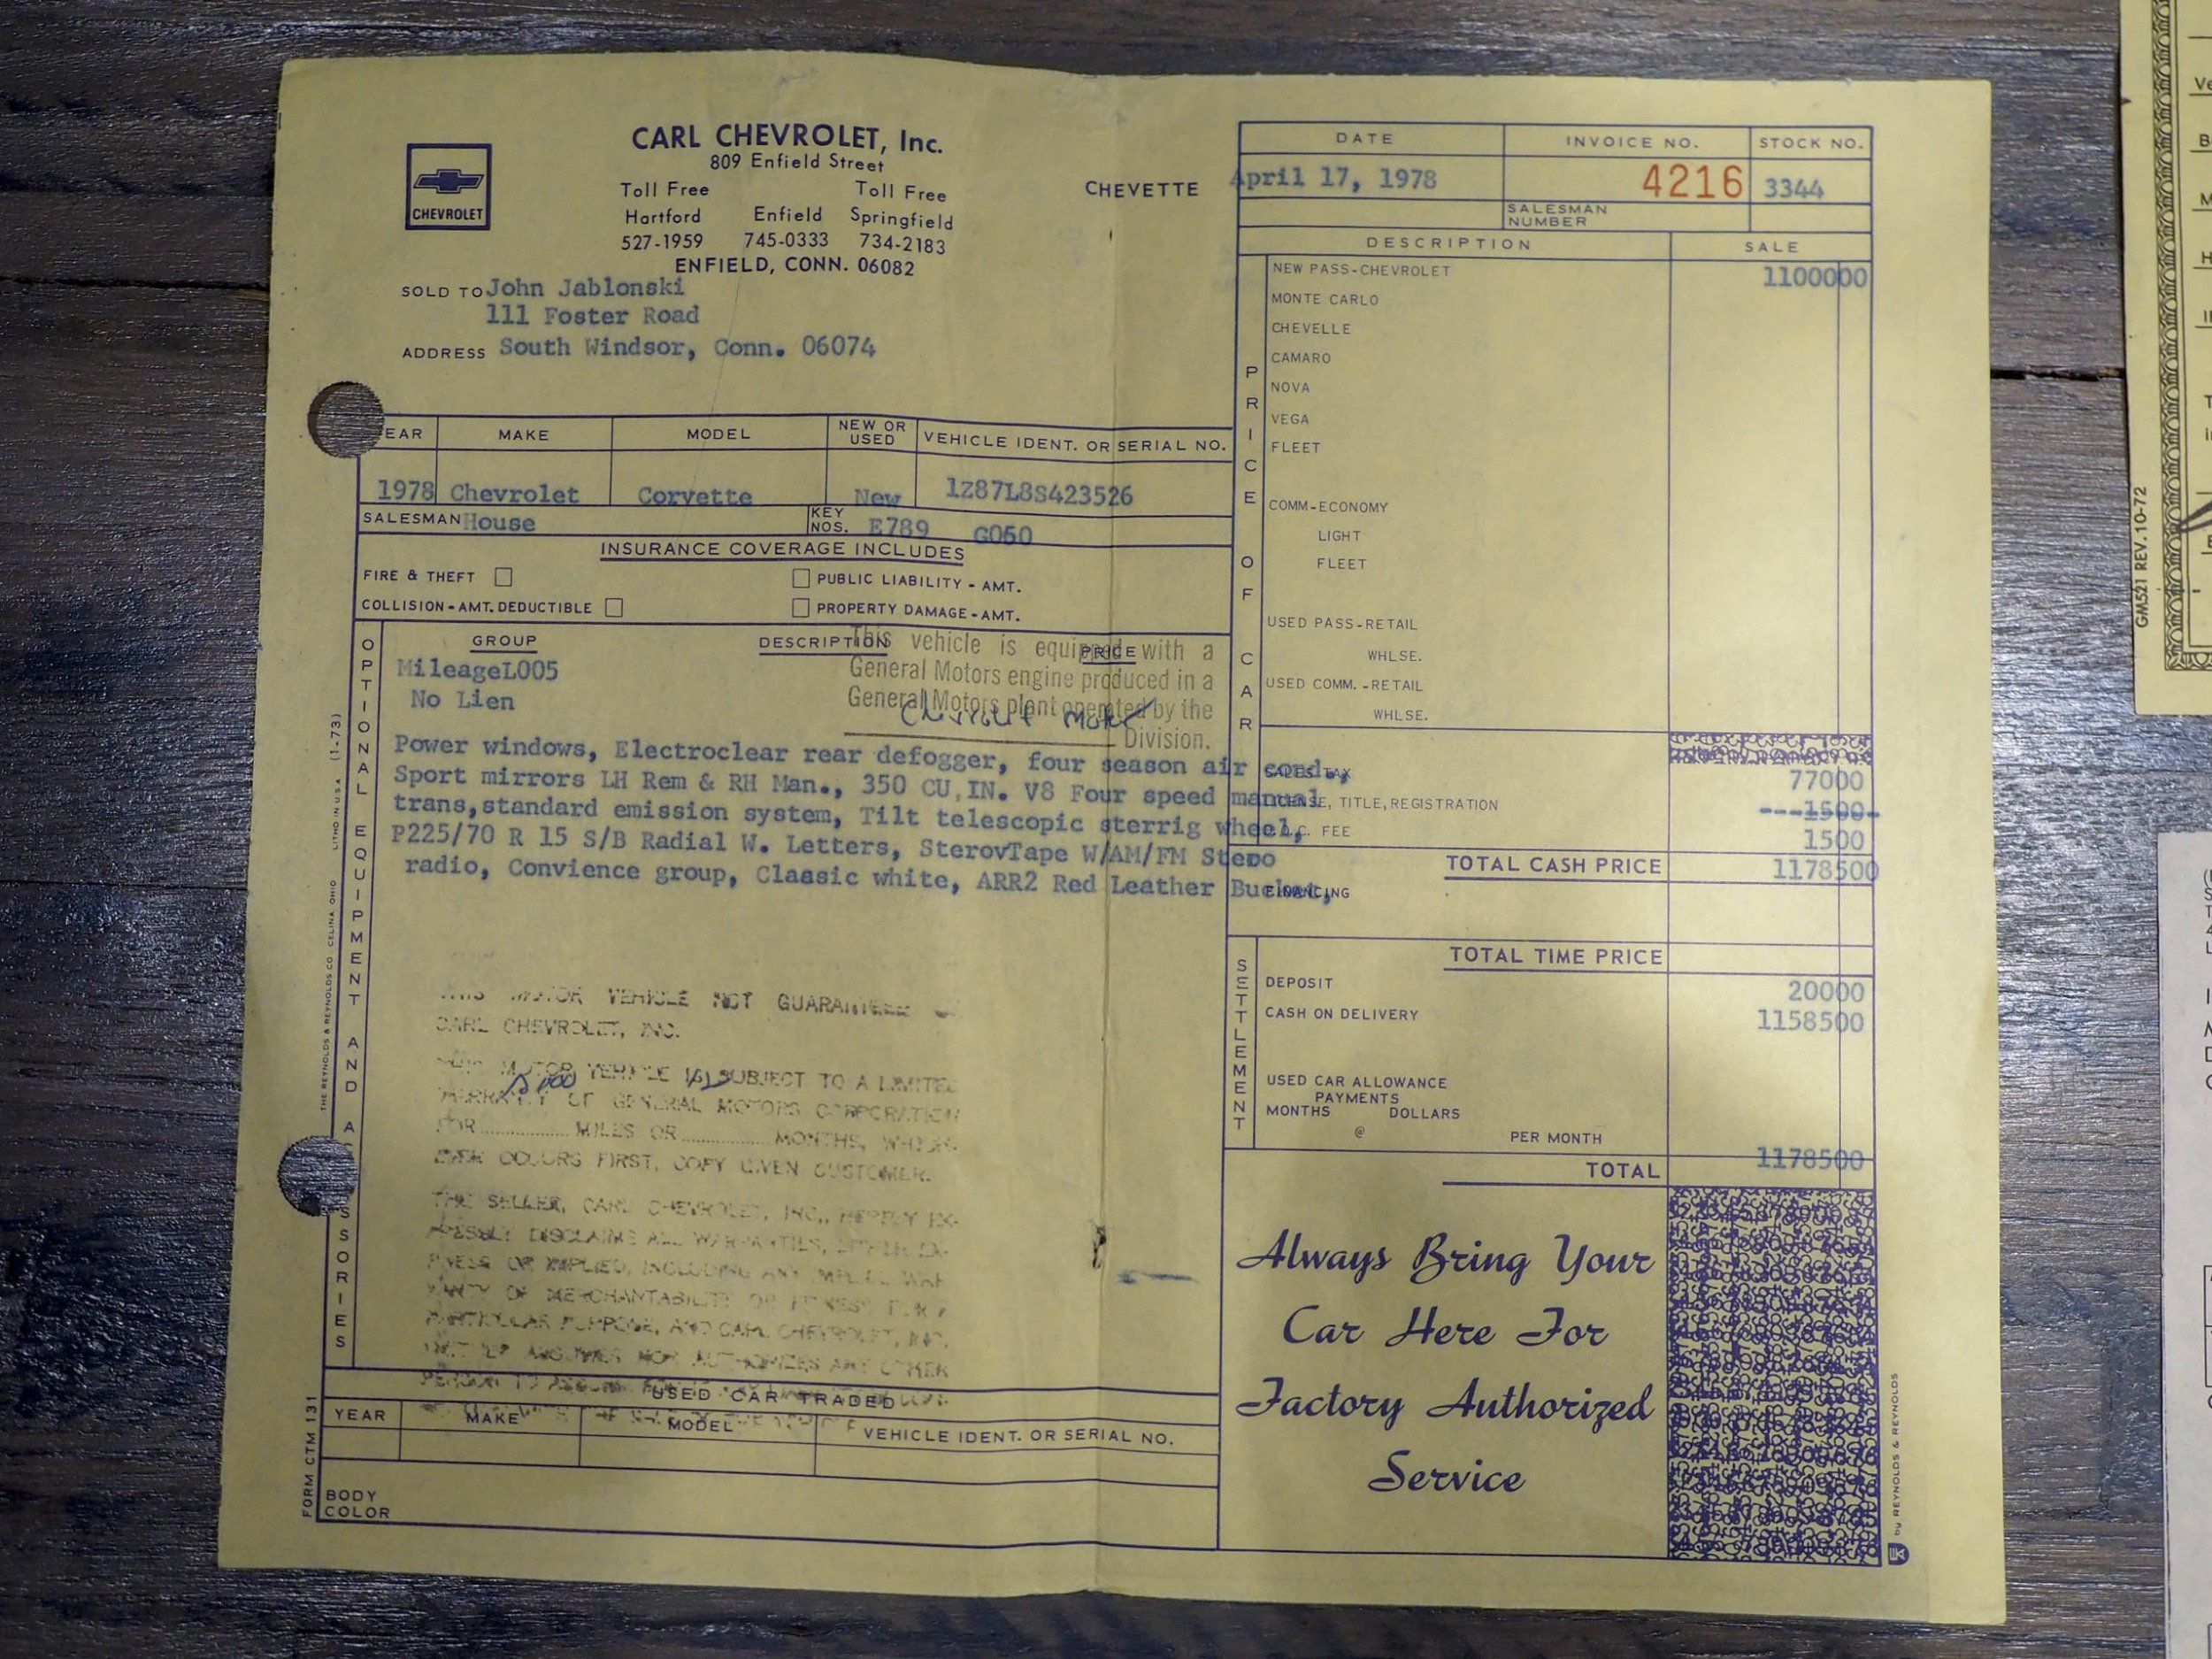 CARL CHEVROLET, Inc.
809 Enfield Street
Toll Free Toll Free
Hartford Enfield Springfield
527-1959 745-0333 734-2183
ENFIELD, CONN. 06082
CHEVROLET
CHEVETTE
SOLD TO John Jablonski
111 Foster Road
ADDRESS South Windsor, Conn. 06074
DATE INVOICE NO. STOCK NO.
April 17, 1978 4216 3344
SALESMAN NUMBER
EAR MAKE MODEL NEW OR USED VEHICLE IDENT. OR SERIAL NO.
1978 Chevrolet Corvette New 1Z87L8S423526
SALESMAN House KEY NOS. E789 G050
INSURANCE COVERAGE INCLUDES
FIRE & THEFT PUBLIC LIABILITY - AMT.
COLLISION - AMT. DEDUCTIBLE PROPERTY DAMAGE - AMT.
OPTIONAL EQUIPMENT AND A SSORIES
GROUP DESCRIPTION PRICE
This vehicle is equipped with a
General Motors engine produced in a
General Motors plant operated by the
Chevrolet Motor
Division.
MileageL005
No Lien
Power windows, Electroclear rear defogger, four season air cond.,
Sport mirrors LH Rem & RH Man., 350 CU.IN. V8 Four speed manual
trans,standard emission system, Tilt telescopic sterrig wheel,
P225/70 R 15 S/B Radial W. Letters, SterovTape W/AM/FM Stero
radio, Convience group, Claasic white, ARR2 Red Leather Bucket,
MOTOR VEHICLE NOT GUARANTEED
CARL CHEVROLET, INC.
MOTOR VEHICLE (S) SUBJECT TO A LIMITED
WARRANTY OF GENERAL MOTORS CORPORATION
FOR MILES OR MONTHS, WHICH-
EVER OCCURS FIRST, COPY GIVEN CUSTOMER.
THE SELLER, CARL CHEVROLET, INC., HEREBY EX-
PRESSLY DISCLAIMS ALL WARRANTIES, EITHER EX-
PRESS OR IMPLIED, INCLUDING ANY IMPLIED WAR-
RANTY OF MERCHANTABILITY OR FITNESS FOR A
PARTICULAR PURPOSE, AND CARL CHEVROLET, INC.
NEITHER ASSUMES NOR AUTHORIZES ANY OTHER
PERSON TO ASSUME
USED CAR TRADED
YEAR MAKE MODEL VEHICLE IDENT. OR SERIAL NO.
BODY COLOR
PRICE OF CAR
DESCRIPTION SALE
NEW PASS-CHEVROLET 1100000
MONTE CARLO
CHEVELLE
CAMARO
NOVA
VEGA
FLEET
COMM-ECONOMY
LIGHT
FLEET
USED PASS-RETAIL
WHLSE.
USED COMM.-RETAIL
WHLSE.
SALES TAX 77000
LICENSE, TITLE, REGISTRATION ---1500-
FEE 1500
TOTAL CASH PRICE 1178500
FINANCING
TOTAL TIME PRICE
SETTLEMENT
DEPOSIT 20000
CASH ON DELIVERY 1158500
USED CAR ALLOWANCE
PAYMENTS
MONTHS DOLLARS
@ PER MONTH
TOTAL 1178500
Always Bring Your
Car Here For
Factory Authorized
Service
FORM CTM 131
THE REYNOLDS & REYNOLDS CO. CELINA, OHIO LITHO IN U.S.A. (1-73)
by REYNOLDS & REYNOLDS
GM521 REV. 10-72